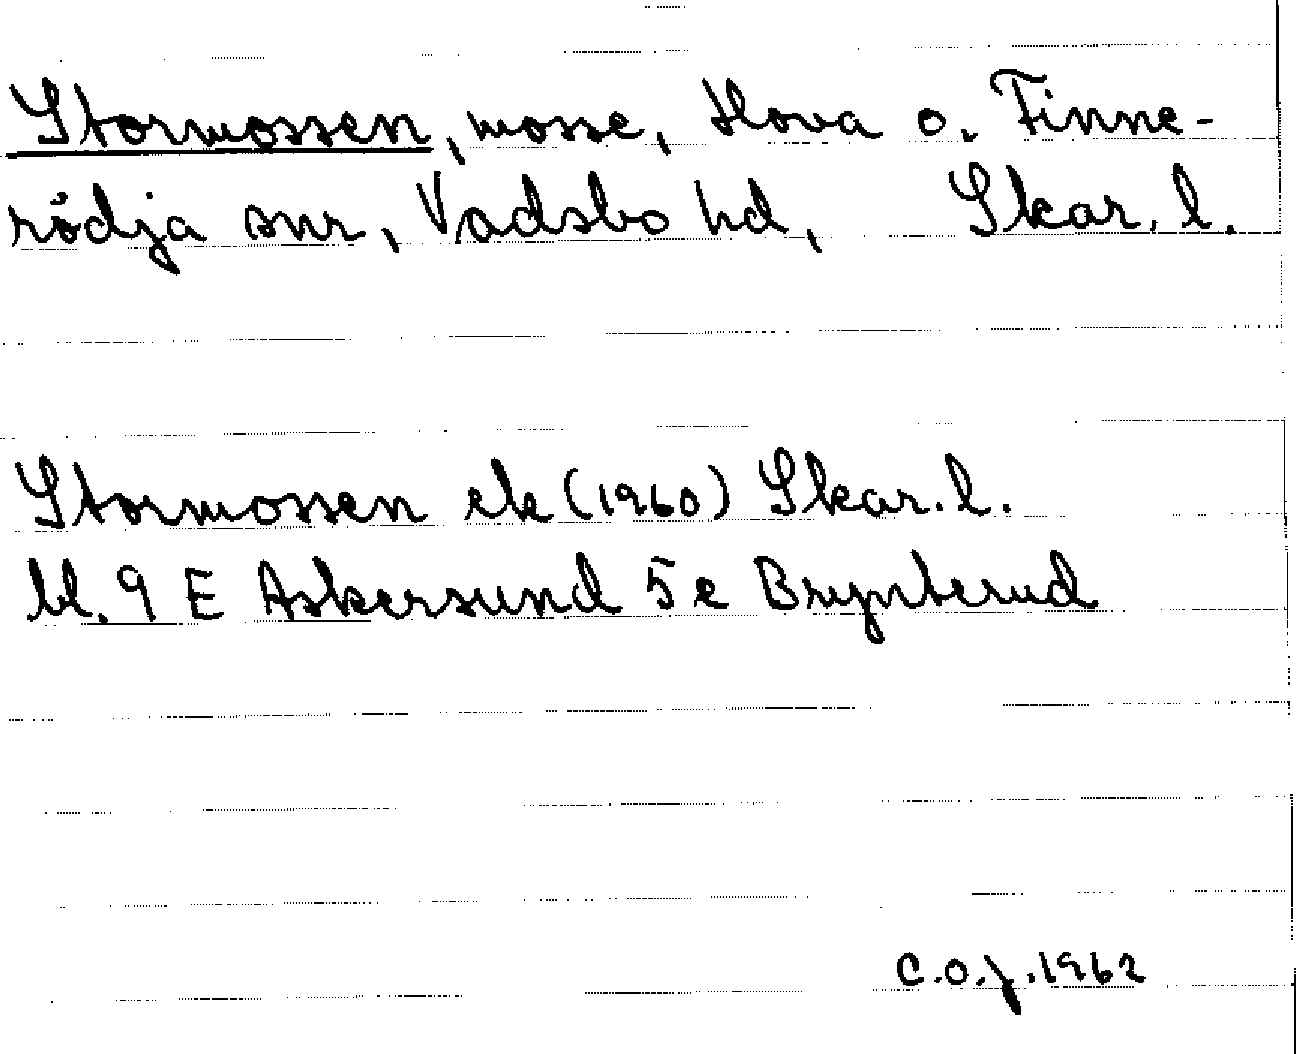 Stormossen, mosse, Hova o. Finne-
rödja snr, Vadsbo hd, Skar. l.
Stormossen ek (1960) Skar. l.
bl. 9 E Askersund 5 e Brynterud
C.O.J. 1962